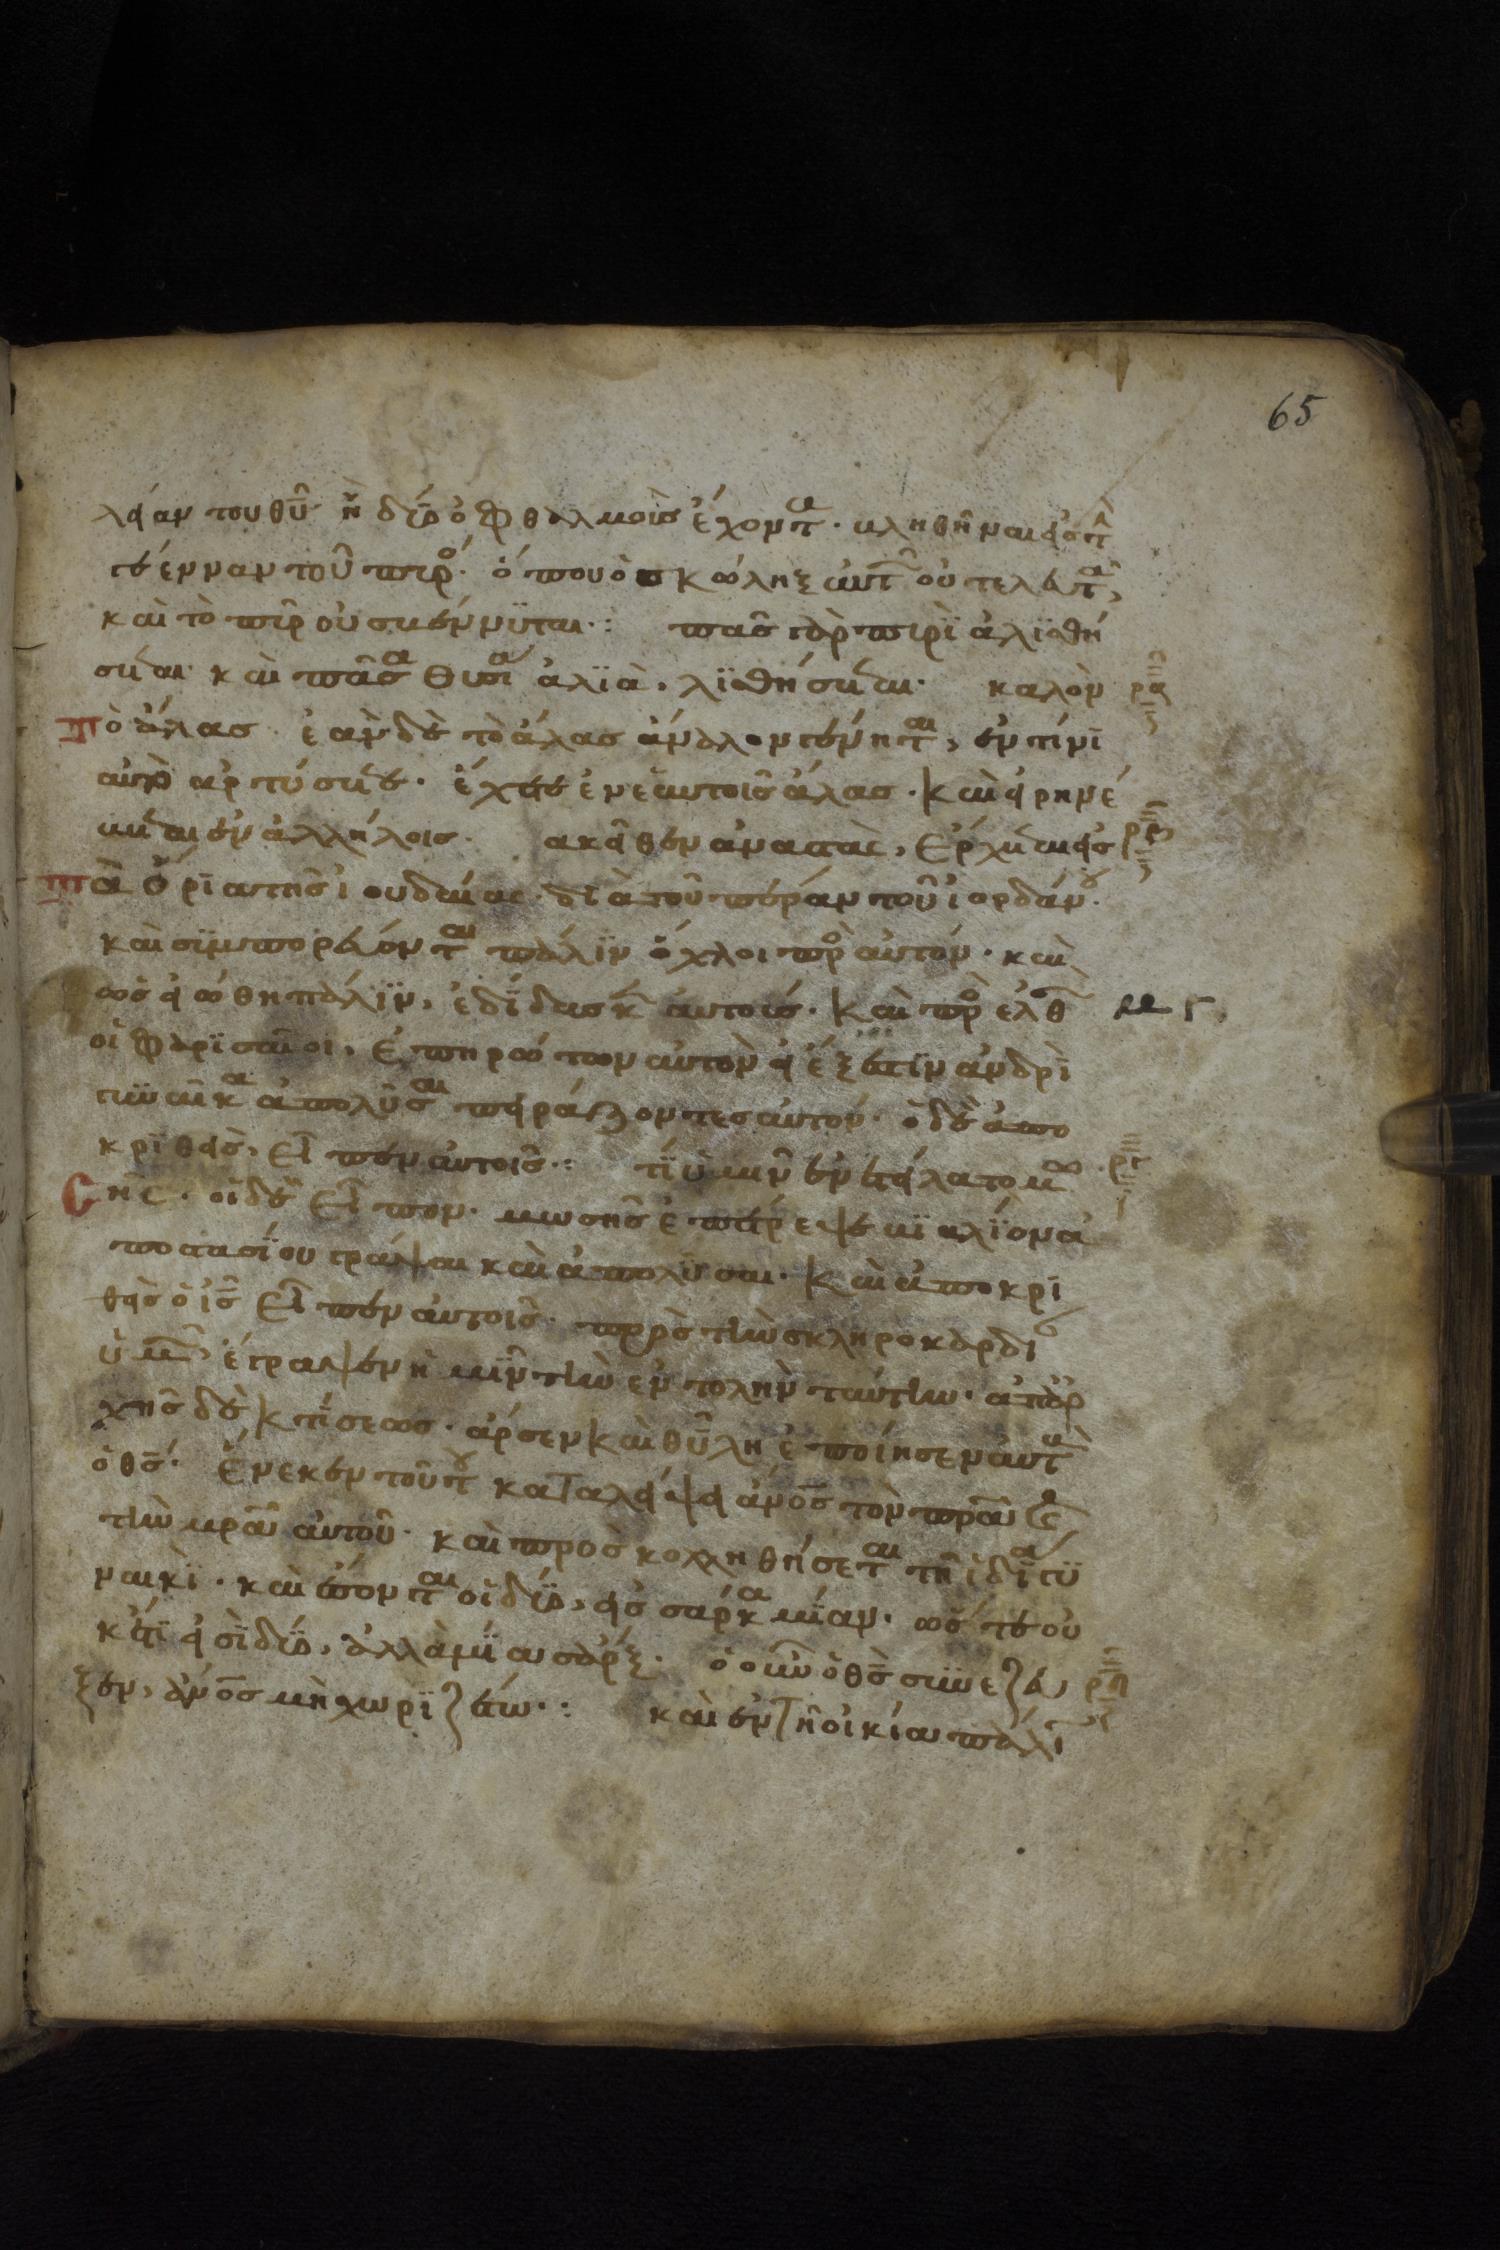 65
λείαν του θῦ ἢ δύο ὀφθαλμοὺς ἔχοντα. κληθῆναι εἰς τὴ
γέενναν τοῦ πυρό. ὅπου ὁ σκώληξ αὐτ οὐ τελευτᾶ,
καὶ τὸ πῦρ οὐ σβέννϋται·: πᾶς γὰρ πυρῒ ἁλϊσθή
σεται. καὶ πᾶσα θυσία ἁλϊὰ, λϊσθήσεται. καλὸν ρα
Τὸ ἅλας. ἐὰν δὲ τὸ ἅλας ἄναλον γένηται, ἐν τίνϊ
αὐτὸ ἀρτύσετε. ἔχετε ἐν ἑαυτοῖς ἅλας. καὶ εἰρηνέ
νεται ἐν ἀλλήλοις. ακεῖθεν ἀναστὰς, ἔρχεται εἰς ρβ
Τὰ ὅρϊα τῆς ἰουδαίας. διὰ τοῦ πέραν τοῦ ἰορδάνου.
καὶ σϊμπορεύονται πάλϊν ὄχλοι πρὸ αὐτόν. καὶ
ὡς εἰώθη πάλϊν, ἐδϊδασκ αὐτούς. καὶ προελθ μγ
οἱ φαρϊσαῖοι, ἐπηρώτουν αὐτὸν εἰ ἔξεστϊν ἀνδρῒ
γυναῖκα ἀπολῦσαι πειράζοντες αὐτόν. ὁ δὲ ἀπο
κρϊθεὶς, εἶπεν αὐτοῖς·: τΐ ὑμῖν ἐνετείλατο μω ργ
Σῆς. οἱ δὲ εἶπον. μωσῆς ἐπέτρεψε βϊβλίον ἀ
ποστασΐου γράψαι καὶ ἀπολῦσαι. καὶ ἀποκρϊ
θεὶς ὁ ἰς εἶπεν αὐτοῖς. πρὸς τὴν σκληροκαρδί
ὑμ, ἔγραψεν ἡμῒν τὴν ἐντολὴν ταύτην. ἀπὸ ἀρ
χῆς δὲ κτίσεως. ἄρσεν καὶ θῦλη ἐποίησεν αὐτὰ
ὁ θς. ἕνεκεν τούτου καταλείψει ἄνος τὸν πρα καὶ
τὴν μρα αὐτοῦ. καὶ προσκολληθήσεται τῇ ἰδΐα γϋ
ναικῒ. καὶ ἔσονται οἱ δύο, εἰς σάρκα μΐαν. ὥστε οὐ
κέτϊ εἰσῒ δύο, ἀλλὰ μΐα σάρξ. ὁ οὖν ὁ θς συνέζευ ρδ
ξεν, ἄνος μὴ χωρϊζέτω·: καὶ ἐν τῇ οἰκία πάλι